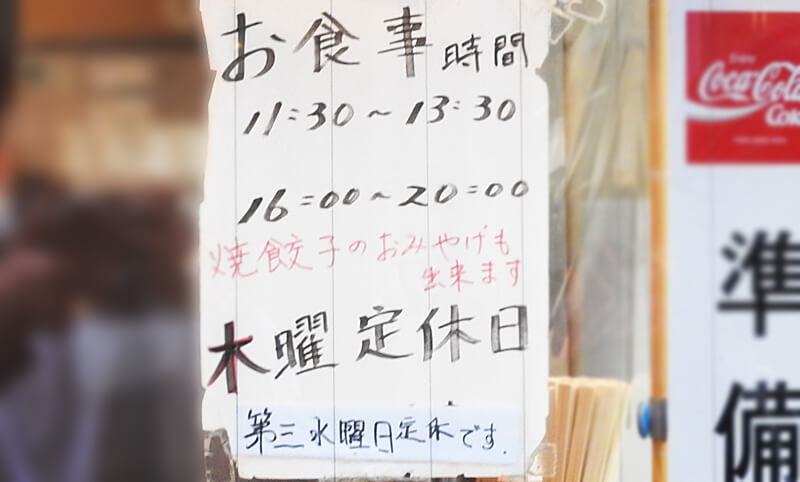 お食事時間
11:30~13:30
16:00~20:00
焼餃子のおみやげも
出来ます
木曜定休日
第三水曜日定休です.
Enjoy
Coca-Cola
Coke
準備